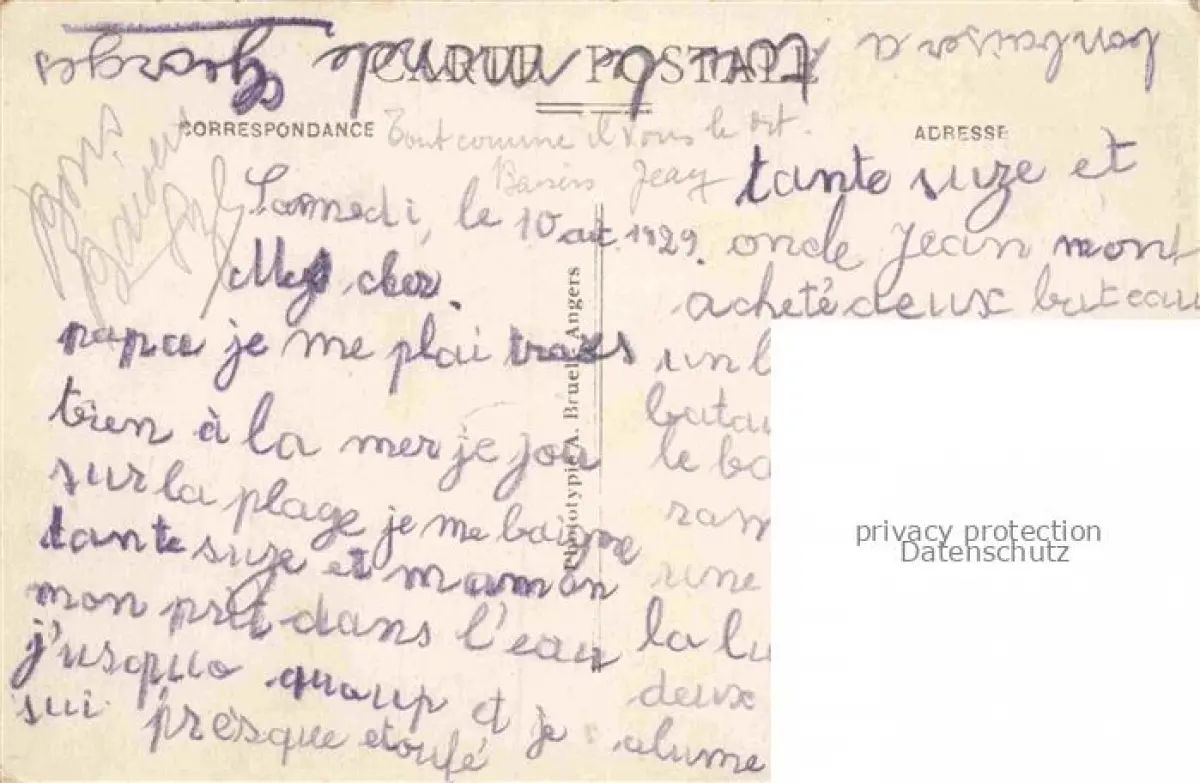 bon baiser a
tout le monde Georges
CARTE POSTALE
CORRESPONDANCE
ADRESSE
Tout comme il vous le dit.
Baisers Jean
Bons
Samedi, le 10 out. 1929.
Mes cher.
papa je me plai traes
bien à la mer je jou
sur la plage je me baigne
tante suze et maman
mon prit dans l'eau
j'usquo quoup et je
sui présque etoufé
tante suze et
oncle Jean mont
acheté deux bateau
un b
batau
le ba
ram
rine
la lu
deux
alume
Phototypie A. Bruel, Angers
privacy protection
Datenschutz